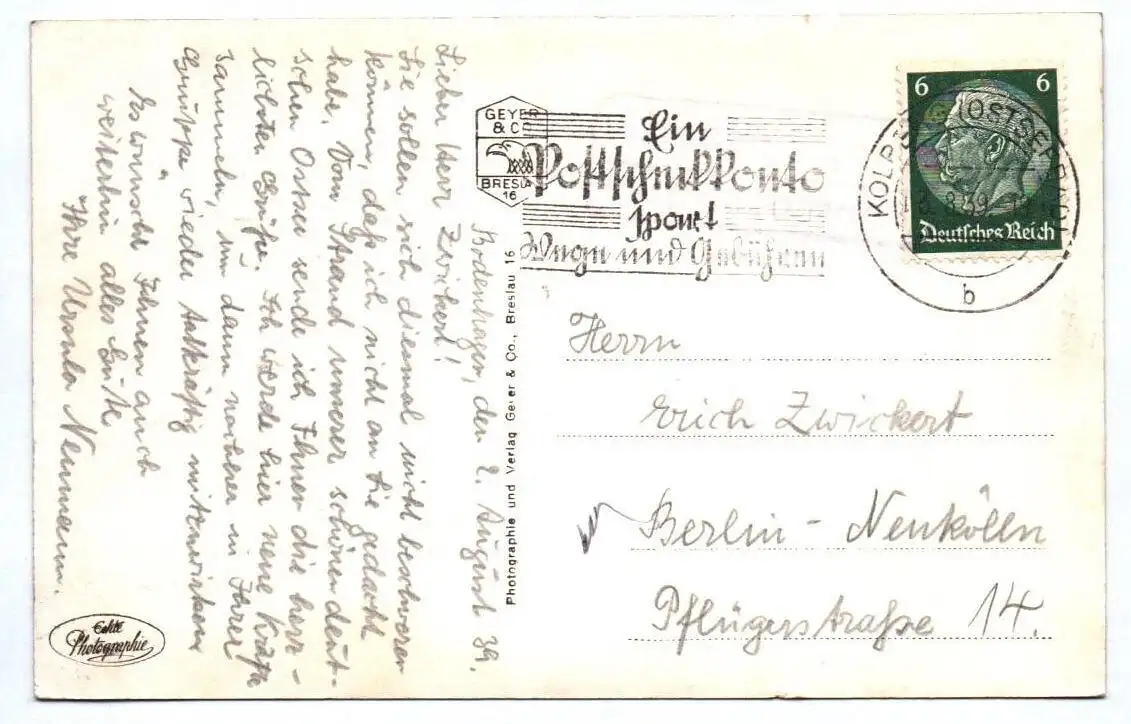 Bodenhagen, den 2. August 39.
Lieber Herr Zwickert!
Sie sollen sich diesmal nicht beschweren
können, daß ich nicht an Sie gedacht
habe. Vom Strand unserer schönen deut-
schen Ostsee sende ich Ihnen die herz-
lichsten Grüße. Ich werde hier neue Kräfte
sammeln, um dann nachher in Ihrer
Gruppe wieder tatkräftig mitzuwirken.
Es wünscht Ihnen auch
weiterhin alles Gute
Ihre Ursula Neumann.
Echte
Photographie
Photographie und Verlag Geyer & Co., Breslau 16
GEYER
& CO
BRESLAU
16
Ein
Postscheckkonto
spart
Wege und Gebühren
KOLB OSTSEEBAD
8.39
b
6 6
Deutsches Reich
Herrn
Erich Zwickert
Berlin - Neukölln
Pflügerstraße 14.